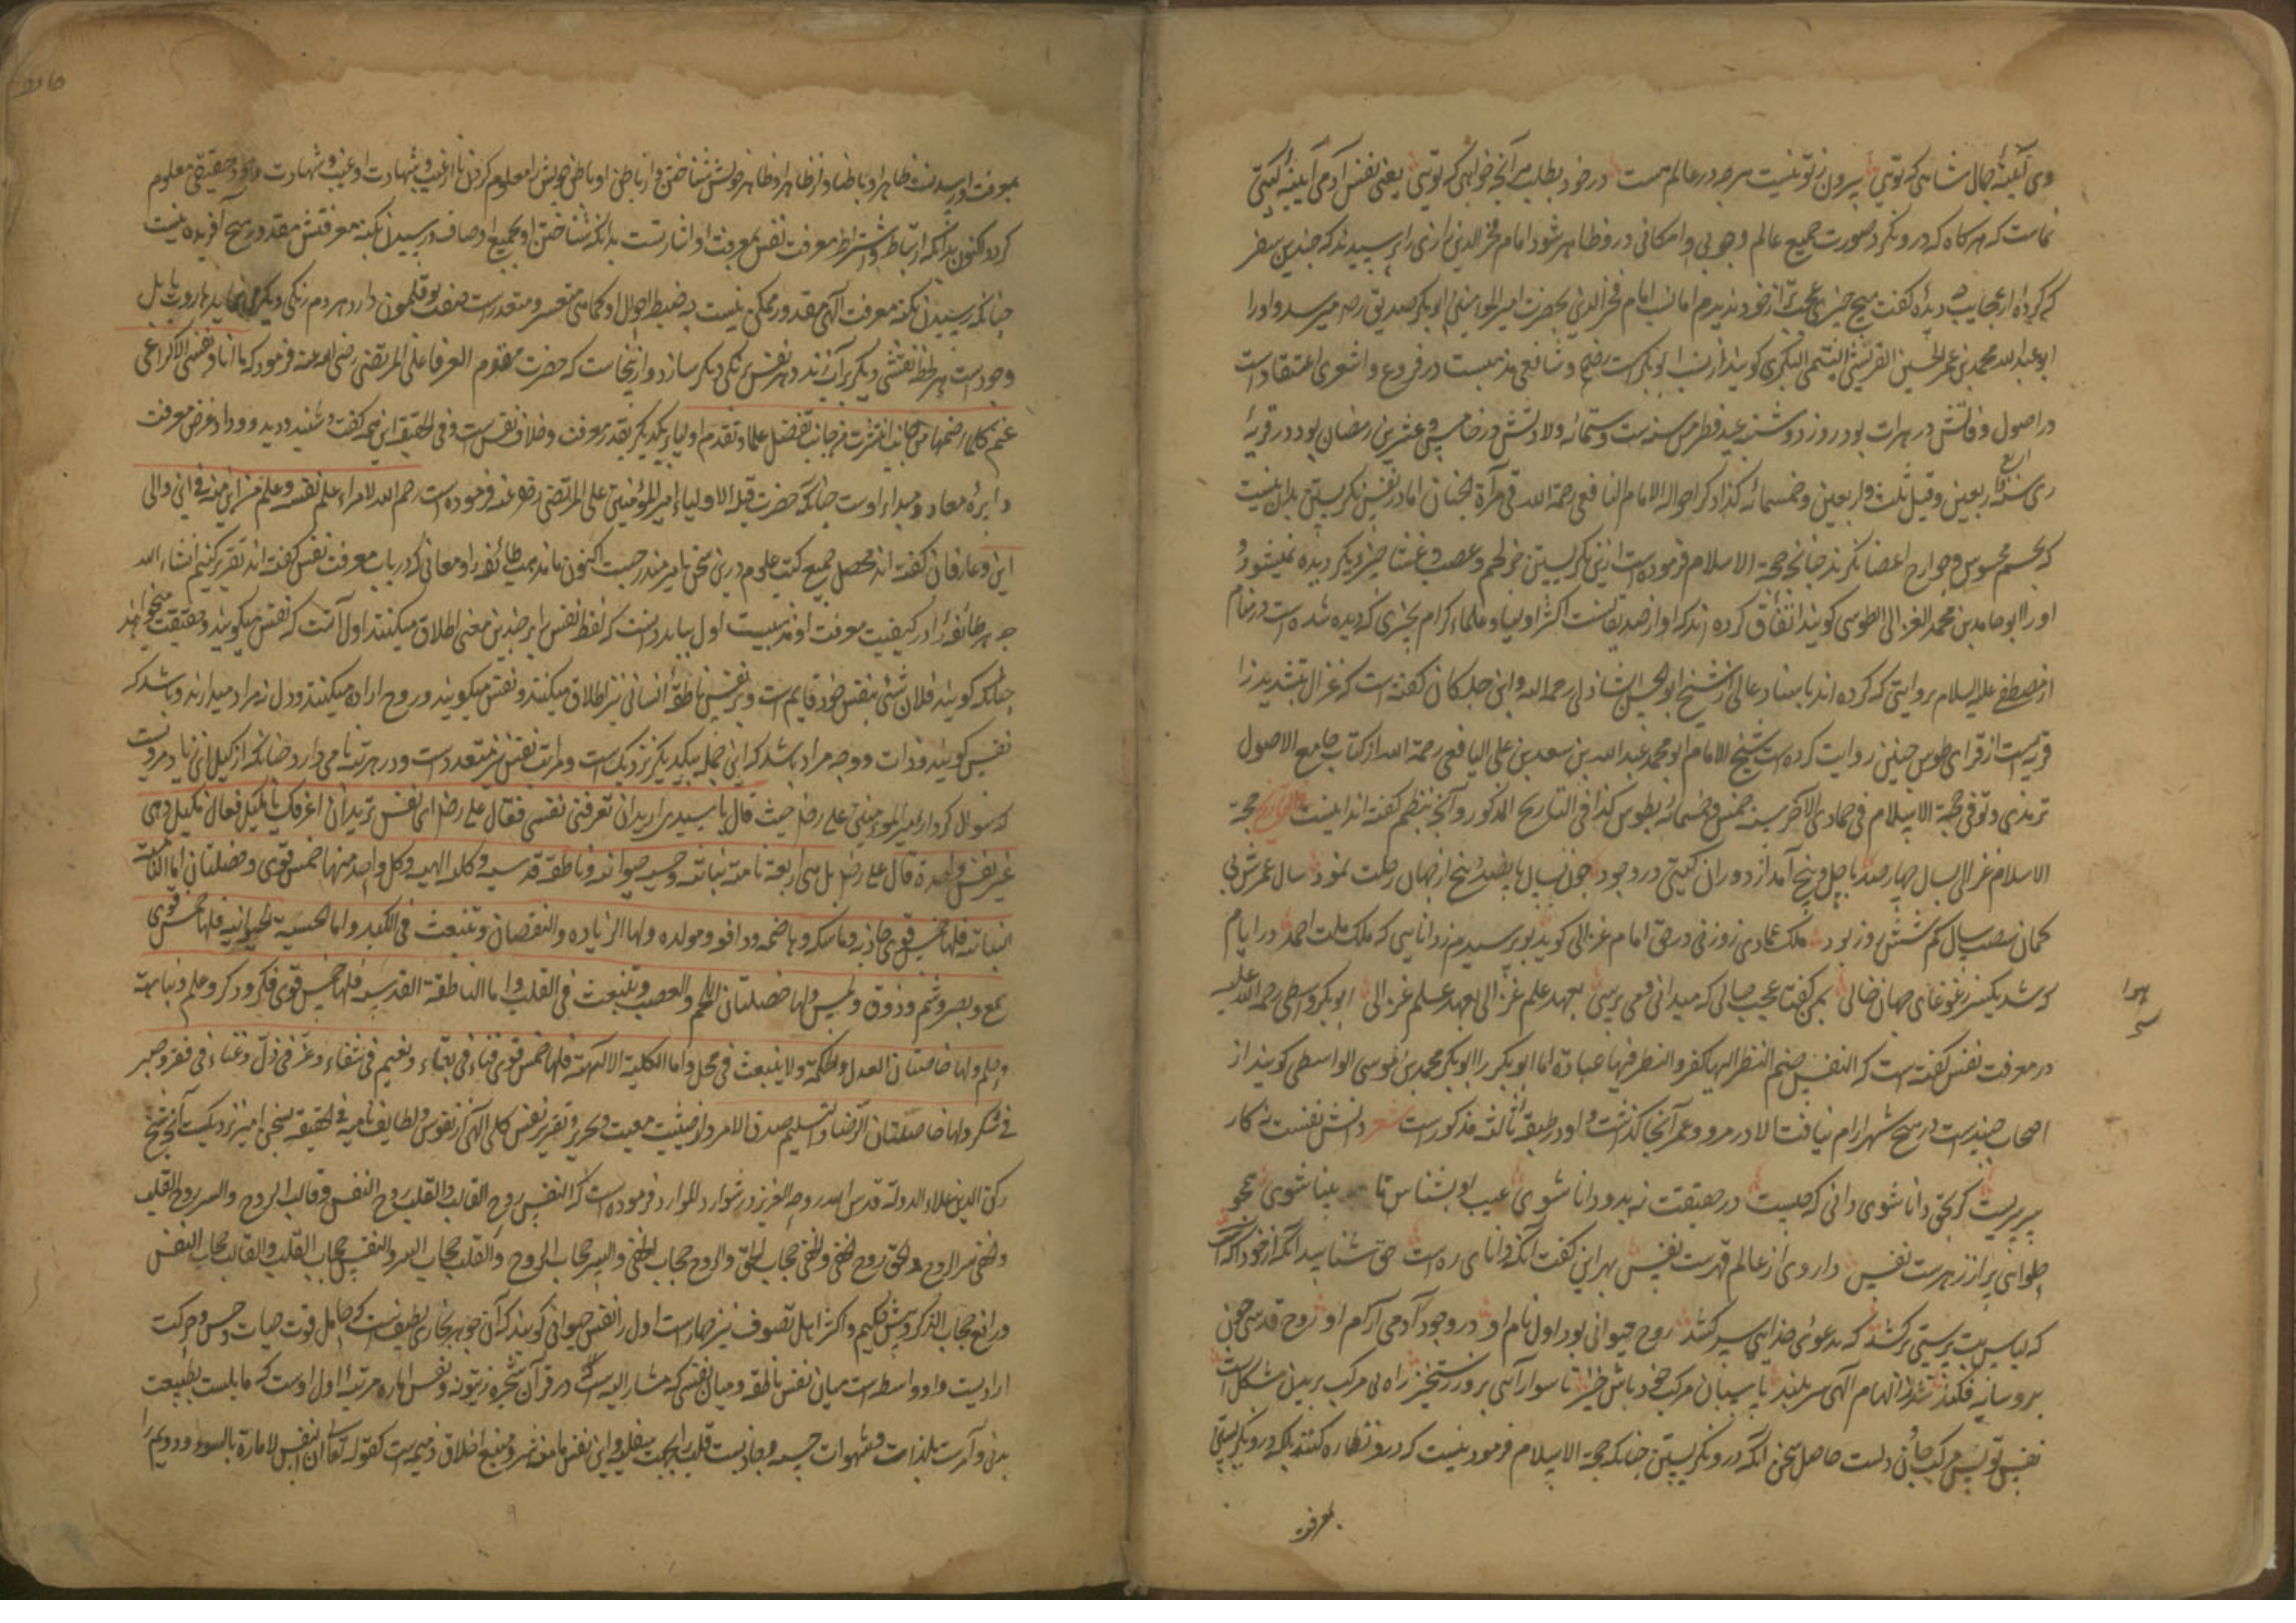 وی آئینهٔ جمال شاهی که تویی بیرون ز تو نیست هرچه در عالم هست در خود بطلب هر آنچه خواهی که تویی یعنی نفس آدمی آیینه گیتی
نماست که هرگاه که درو نگرد صورت جمیع عالم وجوبی و امکانی درو ظاهر شود امام فخر الدین رازی را پرسیدند که چندین سفر
که کردهٔ از عجایب چه دیدهٔ گفت هیچ چیزی عجب‌تر از خود ندیدم اما نسب امام فخر الدین بحضرت امیر المومنین ابوبکر صدیق رض میرسد و او را
ابو عبدالله محمد بن عمر الحسین القریشی التیمی البکری گویند از نسب ابوبکر است رض و شافعی مذهبست در فروع و اشعری اعتقاد است
در اصول وفاتش در هرات بود روز دوشنبه عید فطر سنه ست و ستمائه ولادتش در خامس و عشرین رمضان بود در قریهٔ
ری سنه اربع اربعین و قیل ثلث و اربعین و خمسمائه کذا ذکر احواله الامام الیافعی رحمة الله فی مرآة الجنان اما در نفس نگریستن بدان نیست
که بچشم محسوس و جوارح اعضا نگرند چنانچه حجة الاسلام فرموده است
او را ابو حامد بن محمد الغزالی الطوسی گویند اتفاق کرده اند که او از صدیقانست اکثر اولیا و علماء کرام بچیزی که دیده شده است در منام
از مصطفی علیه السلام بروایتی که کرده اند باسناد عالی از شیخ ابو الحسن الشاذلی رحمه الله و ابن خلکان گفته است که غزال بتشدید زا
قریه است از قرای طوس چنین روایت کرده است شیخ الامام ابو محمد عبدالله بن سعد بن علی الیافعی رحمة الله از کتاب جامع الاصول
ترمذی و توفی حجة الاسلام فی جمادی الآخر سنه خمس و خمسمائه بطوس کذا فی التاریخ المذکور و آنچه بنظم گفته اند اینست تاریخ حجة
الاسلام غزالی بسال چهارصد با چهل و پنج آمد از دوران گیتی در وجود چون بسال پانصد و پنج از جهان رحلت نمود سال عمرش بی
گمان شصت سال کم شش روز بود ملک عمادی زوزنی در حق امام غزالی گوید بو پرسیدم ز دانایی که ملک ملت احمد در ایام
که شد یکسر ز غوغای جهان خالی بمن گفتا عجب حالی که میدانی و می پرسی بعهد علم غزالی بعهد علم غزالی ابوبکر واسطی رحمة الله علیه
در معرفت نفس گفته است که النفس صنم النظر الیها کفر و النظر فیها عبادة اما ابوبکر را ابوبکر محمد بن موسی الواسطی گویند از
اصحاب جنید است در هیچ شهر آرام نیافت الا در مرو و عمر آنجا گذاشت و او در طبقهٔ ثالثه مذکور است شعر دانش نفست نه کار
سرسریست گر بحق دانا شوی دانی که چیست در حقیقت نه بدو دانا شوی عیب او بشناس تا بینا شوی همچو
حلوایی پر از زهرست نفس داروی از عالم قهرست نفس بهر این گفت آنکه دانای ره است حق شناسید آنکه از خود آگه است
که لباس بت پرستی برکشد که بدعوی خدایی سر کشد روح حیوانی بود اول نام او در وجود آدمی آرام او روح قدسی چون
برو سایه فکند شد ز الهام الهی سربلند پاسبان مرکب خود باش خیز تا سوار آیی بروز رستخیز راه بی مرکب بریدن مشکل است
نفس تو پس مرکب جان و دلست حاصل سخن آنکه درو نگریستن چنانکه حجة الاسلام فرمود نیست که درو نظاره کنند بلکه درو نگریستن
بمعرفت
بمعرفت او رسیدنست ظاهرا و باطنا و از ظاهر او ظاهر خویش شناختن و از باطن او باطن خویش را معلوم کردن تا از غیب و شهادت او غیب و شهادت وجود حقیقی معلوم
گردد اکنون بدانکه ارتباط و اشتراط معرفت نفس بمعرفت او اشارتست بدانکه شناختن او بجمیع اوصاف و رسیدن بکنه معرفتش مقدور هیچ آفریده نیست
چنانکه رسیدن بکنه معرفت الهی مقدور و ممکن نیست چه ضبط احوال او کماهی متعسر و متعذر است صفت بوقلمون دارد هر دم رنگی دیگر می نماید هاروت بابل
وجودست هر لحظه نقشی دیگر بر آب زند و هر نفس نیرنگی دیگر سازد و از اینجاست که حضرت علی المرتضی رضی الله عنه فرمود که ما انا و نفسی الا کراعی
غنم کلما ضمها من جانب انتشرت من جانب تفضیل علما و تقدم اولیا بر یکدیگر بقدر معرفت و خلاف نفس است و فی الحقیقه این همه گفت و شنید و دید و داد غرض معرفت
دایرهٔ معاد و مبداء اوست چنانکه حضرت قبلة الاولیاء امیر المؤمنین علی المرتضی رض عنه فرموده است رحم الله لامراء علم نفسه و علم من این و فی این و الی
این و عارفان گفته اند محصل جمیع کتب علوم درین سخن نامیر مندرجست اکنون ماند مذهب طائفه را و معانی که در باب معرفت نفس گفته اند تقریر کنیم انشاء الله
چه هر طائفه را در کیفیت معرفت او مذهبیست اول بباید دانست که لفظ نفس را بر چندین معنی اطلاق میکنند اول آنست که نفس میگویند و حقیقت میخواهند
چنانکه گویند فلان شئی بنفس خود قایم است و بر نفس ناطقهٔ انسانی نیز اطلاق میکنند و نفس میگویند و روح اراده میکنند و دل نیز مراد میدارند و باشد که
نفس گویند و ذات و وجه مراد باشد که این جمله بیکدیگر نزدیک است و مراتب نفس نیز متعدد است و در هر مرتبه نامی دارد چنانکه از کمیل ابن زیاد مرویست
که سوال کرد از امیر المومنین علی رض حیث قال یا سیدی ارید ان تعرفنی نفسی فقال علی رض ای نفس ترید ان اعرفک یا کمیل فقال کمیل و هی
غیر نفس واحدة قال علی رض بل هی اربعة نامیة نباتیه و حسیه حیوانیه و ناطقه قدسیه و کلیه الهیه و کل واحد منها خمس قوی و خصلتان اما النامیه
النباتیه فلها خمس قوی جاذبه و ماسکه و هاضمه و دافعه و مولده و لها الزیاده و النقصان و تنبعث فی الکبد و اما الحسیة الحیوانیه فلها خمس قوی
سمع و بصر و شم و ذوق و لمس و لها خصلتان و تنبعث فی القلب و اما الناطقة القدسیه فلها خمس قوی فکر و ذکر و علم و نباهة
و حلم و لها خاصتان العدل و الحکمة و لا ینبعث فی محل و اما الکلیة الالهیة فلها خمس قوی فناء فی بقاء و نعیم فی شقاء و عز فی ذل و غناء فی فقر و صبر
فی شکر و لها خاصیتان الرضا و التسلیم صدق الامر و از حیثیت معیت و تحریر و تقریر نفس کلی الهی از نفوس و لطایف نامیه فی الحقیقه بسخن امیر نزدیکست آنچه شیخ
رکن الدین علاء الدوله قدس الله روحه العزیز در شوارد الموارد فرموده است که النفس روح القالب و القلب روح النفس و قالب الروح و السر روح القلب
و الخفی سر الروح و الحق روح الخفی و الخفی حجاب الحق و الروح حجاب الخفی و السر حجاب الروح و القلب حجاب السر و النفس حجاب القلب و القالب حجاب النفس
و رافع حجاب الذکر و پیش حکیم و اکثر اهل تصوف نیز چهارست اول را نفس حیوانی گویند که آن جوهر بخاری لطیف است که حامل قوت حیات و حس و حرکت
ارادیست و او واسطه است میان نفس ناطقه و میان نفسی که مشار الیه است در قرآن بشجره زیتونه و نفس اماره مرتبهٔ اول اوست که مایلست بطبیعت
بدنی و آمر است بلذات و شهوات حسیه و جاذبست قلب را بجهت سفلیه و این نفس مامن شر و منبع اخلاق ذمیمه است کقوله تعا ان النفس لامارة بالسوء و دویم را